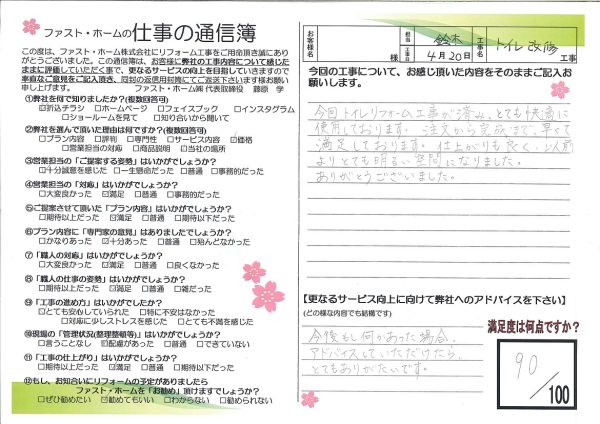 ファスト・ホームの仕事の通信簿
この度は、ファスト・ホーム株式会社にリフォーム工事をご用命頂き誠にあり
がとうございました。この通信簿は、お客様に弊社の工事内容について感じた
ままに評価していただく事で、更なるサービスの向上を目指していきますので
率直なご意見をご記入頂き、同封の返信用封筒にてご返送下さいます様お願い
申し上げます。 ファスト・ホーム㈱ 代表取締役 藤原 学
①弊社を何で知りましたか?(複数回答可)
☑折込チラシ □ホームページ □フェイスブック □インスタグラム
□ショールームを見て □知り合いから聞いて
②弊社を選んで頂いた理由は何ですか?(複数回答可)
□プラン内容 □評判 □専門性 □サービス内容 ☑価格
□営業担当の対応 □商品説明 ☑当社の場所
③営業担当の「ご提案する姿勢」はいかがでしょうか?
☑十分誠意を感じた □一生懸命だった □普通 □事務的だった
④営業担当の「対応」はいかがでしょうか?
□大変良かった ☑満足 □普通 □事務的だった
⑤ご提案させて頂いた「プラン内容」はいかがでしょうか?
□期待以上だった ☑満足 □普通 □期待以下だった
⑥プラン内容に「専門家の意見」はありましたでしょうか?
□かなりあった ☑十分あった □普通 □殆んどなかった
⑦「職人の対応」はいかがでしょうか?
□大変良かった ☑満足 □普通 □良くなかった
⑧「職人の仕事の姿勢」はいかがでしょうか?
□期待以上だった ☑満足 □普通 □雑だった
⑨「工事の進め方」はいかがでしたか?
☑とても安心していられた □特に不安はなかった
□対応に少しストレスを感じた □とても不満を感じた
⑩現場の「管理状況(整理整頓等)」はいかがでしょうか?
□言うことなし ☑配慮があった □普通 □できていない
⑪「工事の仕上がり」はいかがでしょうか?
□期待以上だった ☑満足 □普通 □期待以下だった
⑫もし、お知合いにリフォームの予定がありましたら
ファスト・ホームを「お勧め」頂けますでしょうか?
□ぜひ勧めたい ☑勧めてもいい □わからない □勧められない
お客様名 様 担当 鈴木 工事日 4月20日 工事名 トイレ改修 工事
今回の工事について、お感じ頂いた内容をそのままご記入お
願いします。
今回トイレリフォーム工事が済み、とても快適に
使用しております。 注文から完成まで、早くて
満足しております。 仕上がりも良く、以前
よりとても明るい空間になりました。
ありがとうございました。
【更なるサービス向上に向けて弊社へのアドバイスを下さい】
(どの様な内容でも結構です)
今後もし何かあった場合、
アドバイスしていただけたら、
とてもありがたいです。
満足度は何点ですか?
90/100